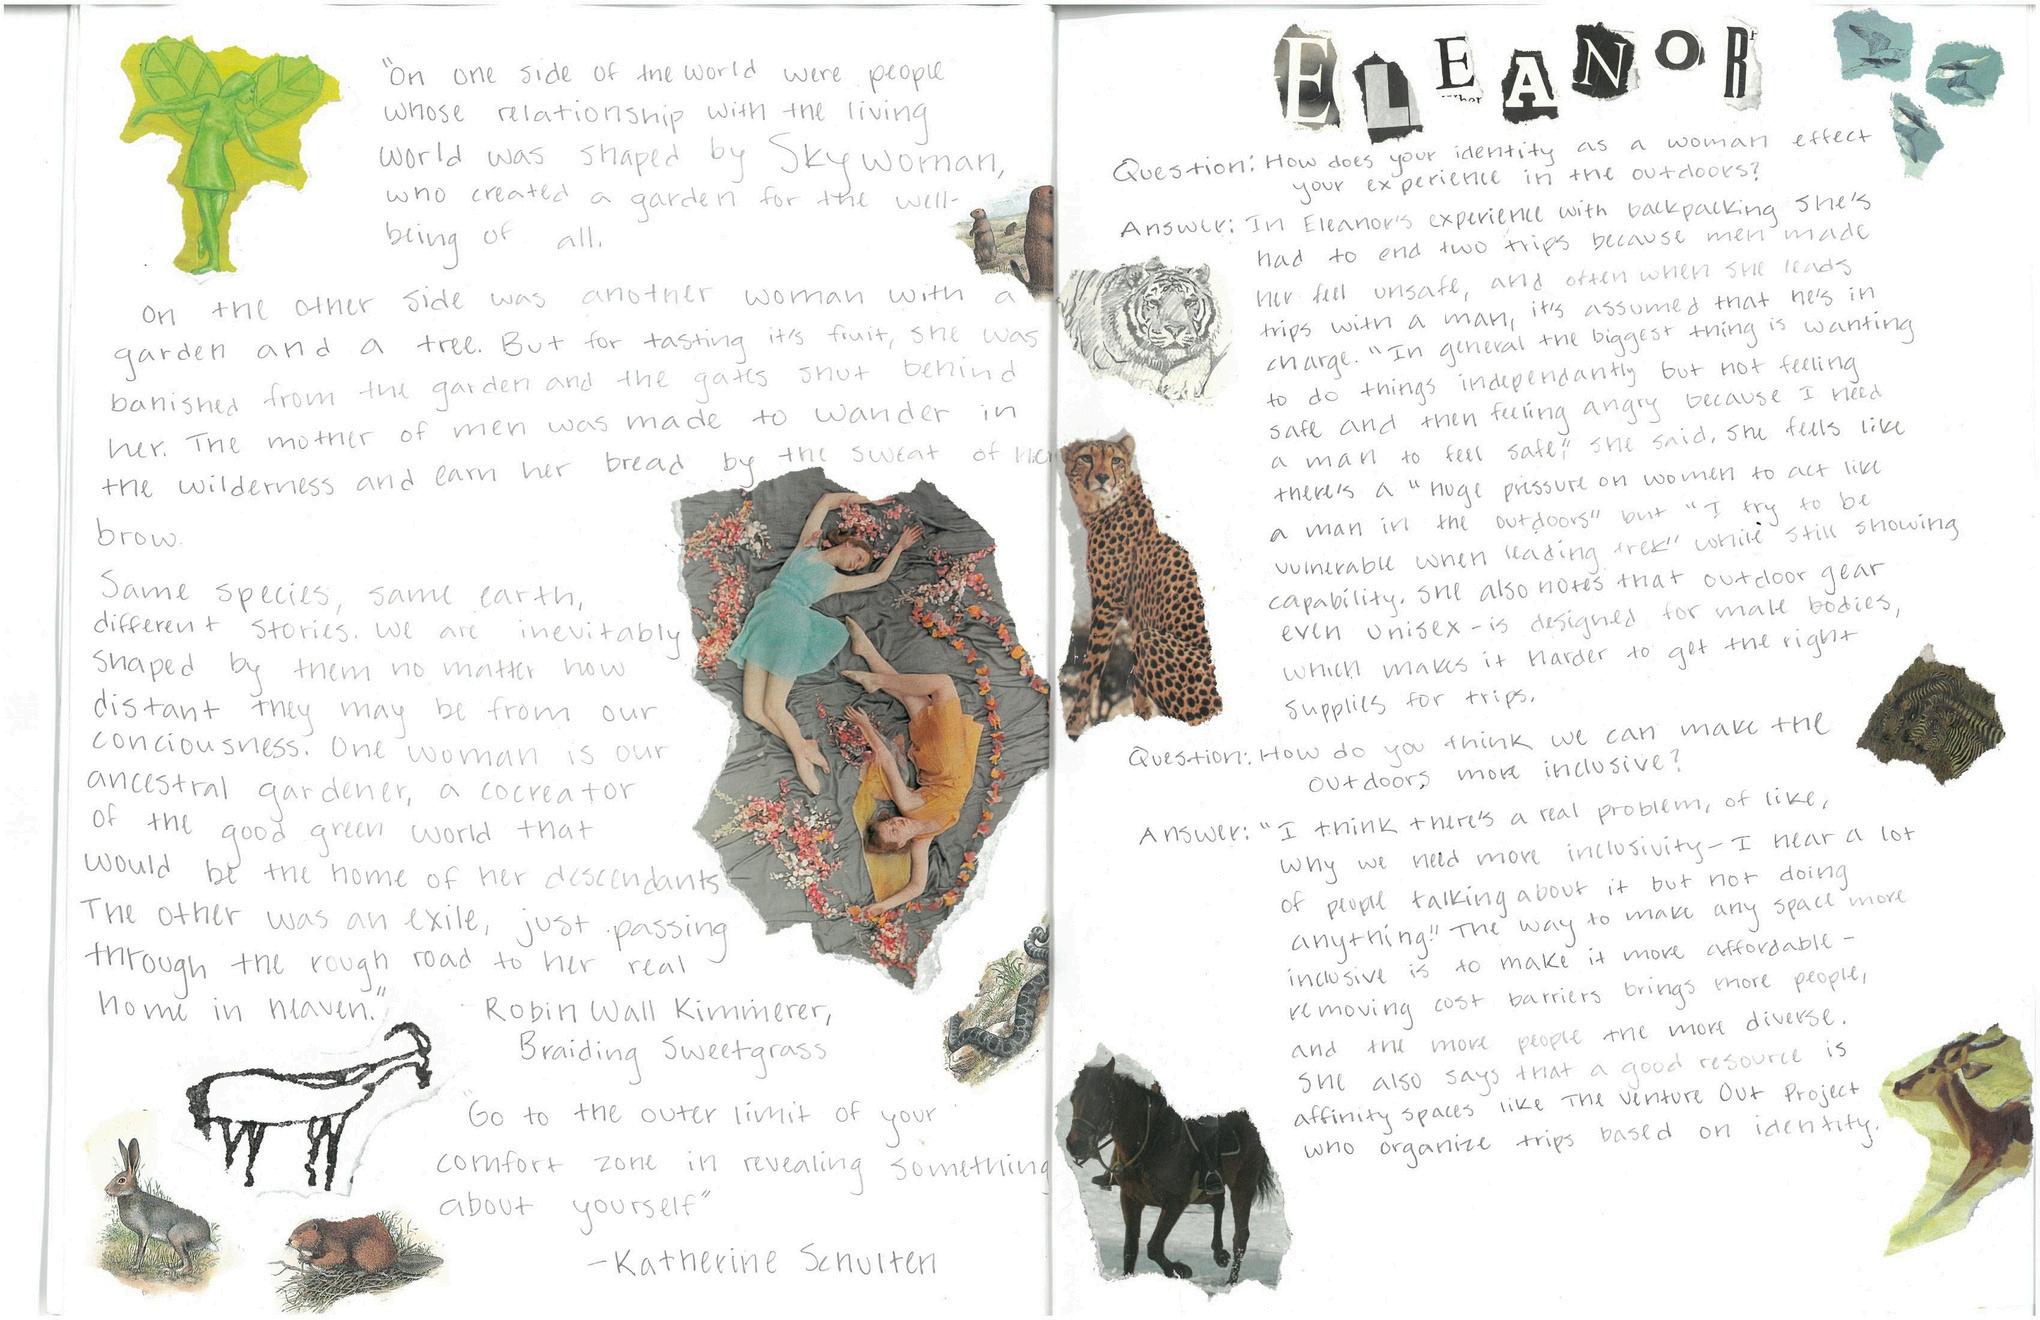 "On one side of the world were people
whose relationship with the living
world was shaped by Skywoman,
who created a garden for the well-
being of all.
On the other side was another woman with a
garden and a tree. But for tasting it's fruit, she was
banished from the garden and the gates shut behind
her. The mother of men was made to wander in
the wilderness and earn her bread by the sweat of her
brow.
Same species, same earth,
different stories. We are inevitably
shaped by them no matter how
distant they may be from our
conciousness. One woman is our
ancestral gardener, a cocreator
of the good green world that
would be the home of her descendants
The other was an exile, just passing
through the rough road to her real
home in heaven."
Robin Wall Kimmerer,
Braiding Sweetgrass
"Go to the outer limit of your
comfort zone in revealing something
about yourself"
-Katherine Schulten
ELEANOR
Question: How does your identity as a woman effect
your experience in the outdoors?
Answer: In Eleanor's experience with backpacking she's
had to end two trips because men made
her feel unsafe, and often when she leads
trips with a man, it's assumed that he's in
charge. "In general the biggest thing is wanting
to do things independantly but not feeling
safe and then feeling angry because I need
a man to feel safe," she said. She feels like
there's a "huge pressure on women to act like
a man in the outdoors" but "I try to be
vulnerable when leading trek" while still showing
capability. She also notes that outdoor gear
even unisex - is designed for male bodies,
which makes it harder to get the right
supplies for trips.
Question: How do you think we can make the
outdoors more inclusive?
Answer: "I think there's a real problem, of like,
why we need more inclusivity - I hear a lot
of people talking about it but not doing
anything." The way to make any space more
inclusive is to make it more affordable -
removing cost barriers brings more people,
and the more people the more diverse.
She also says that a good resource is
affinity spaces like The Venture Out Project
who organize trips based on identity.